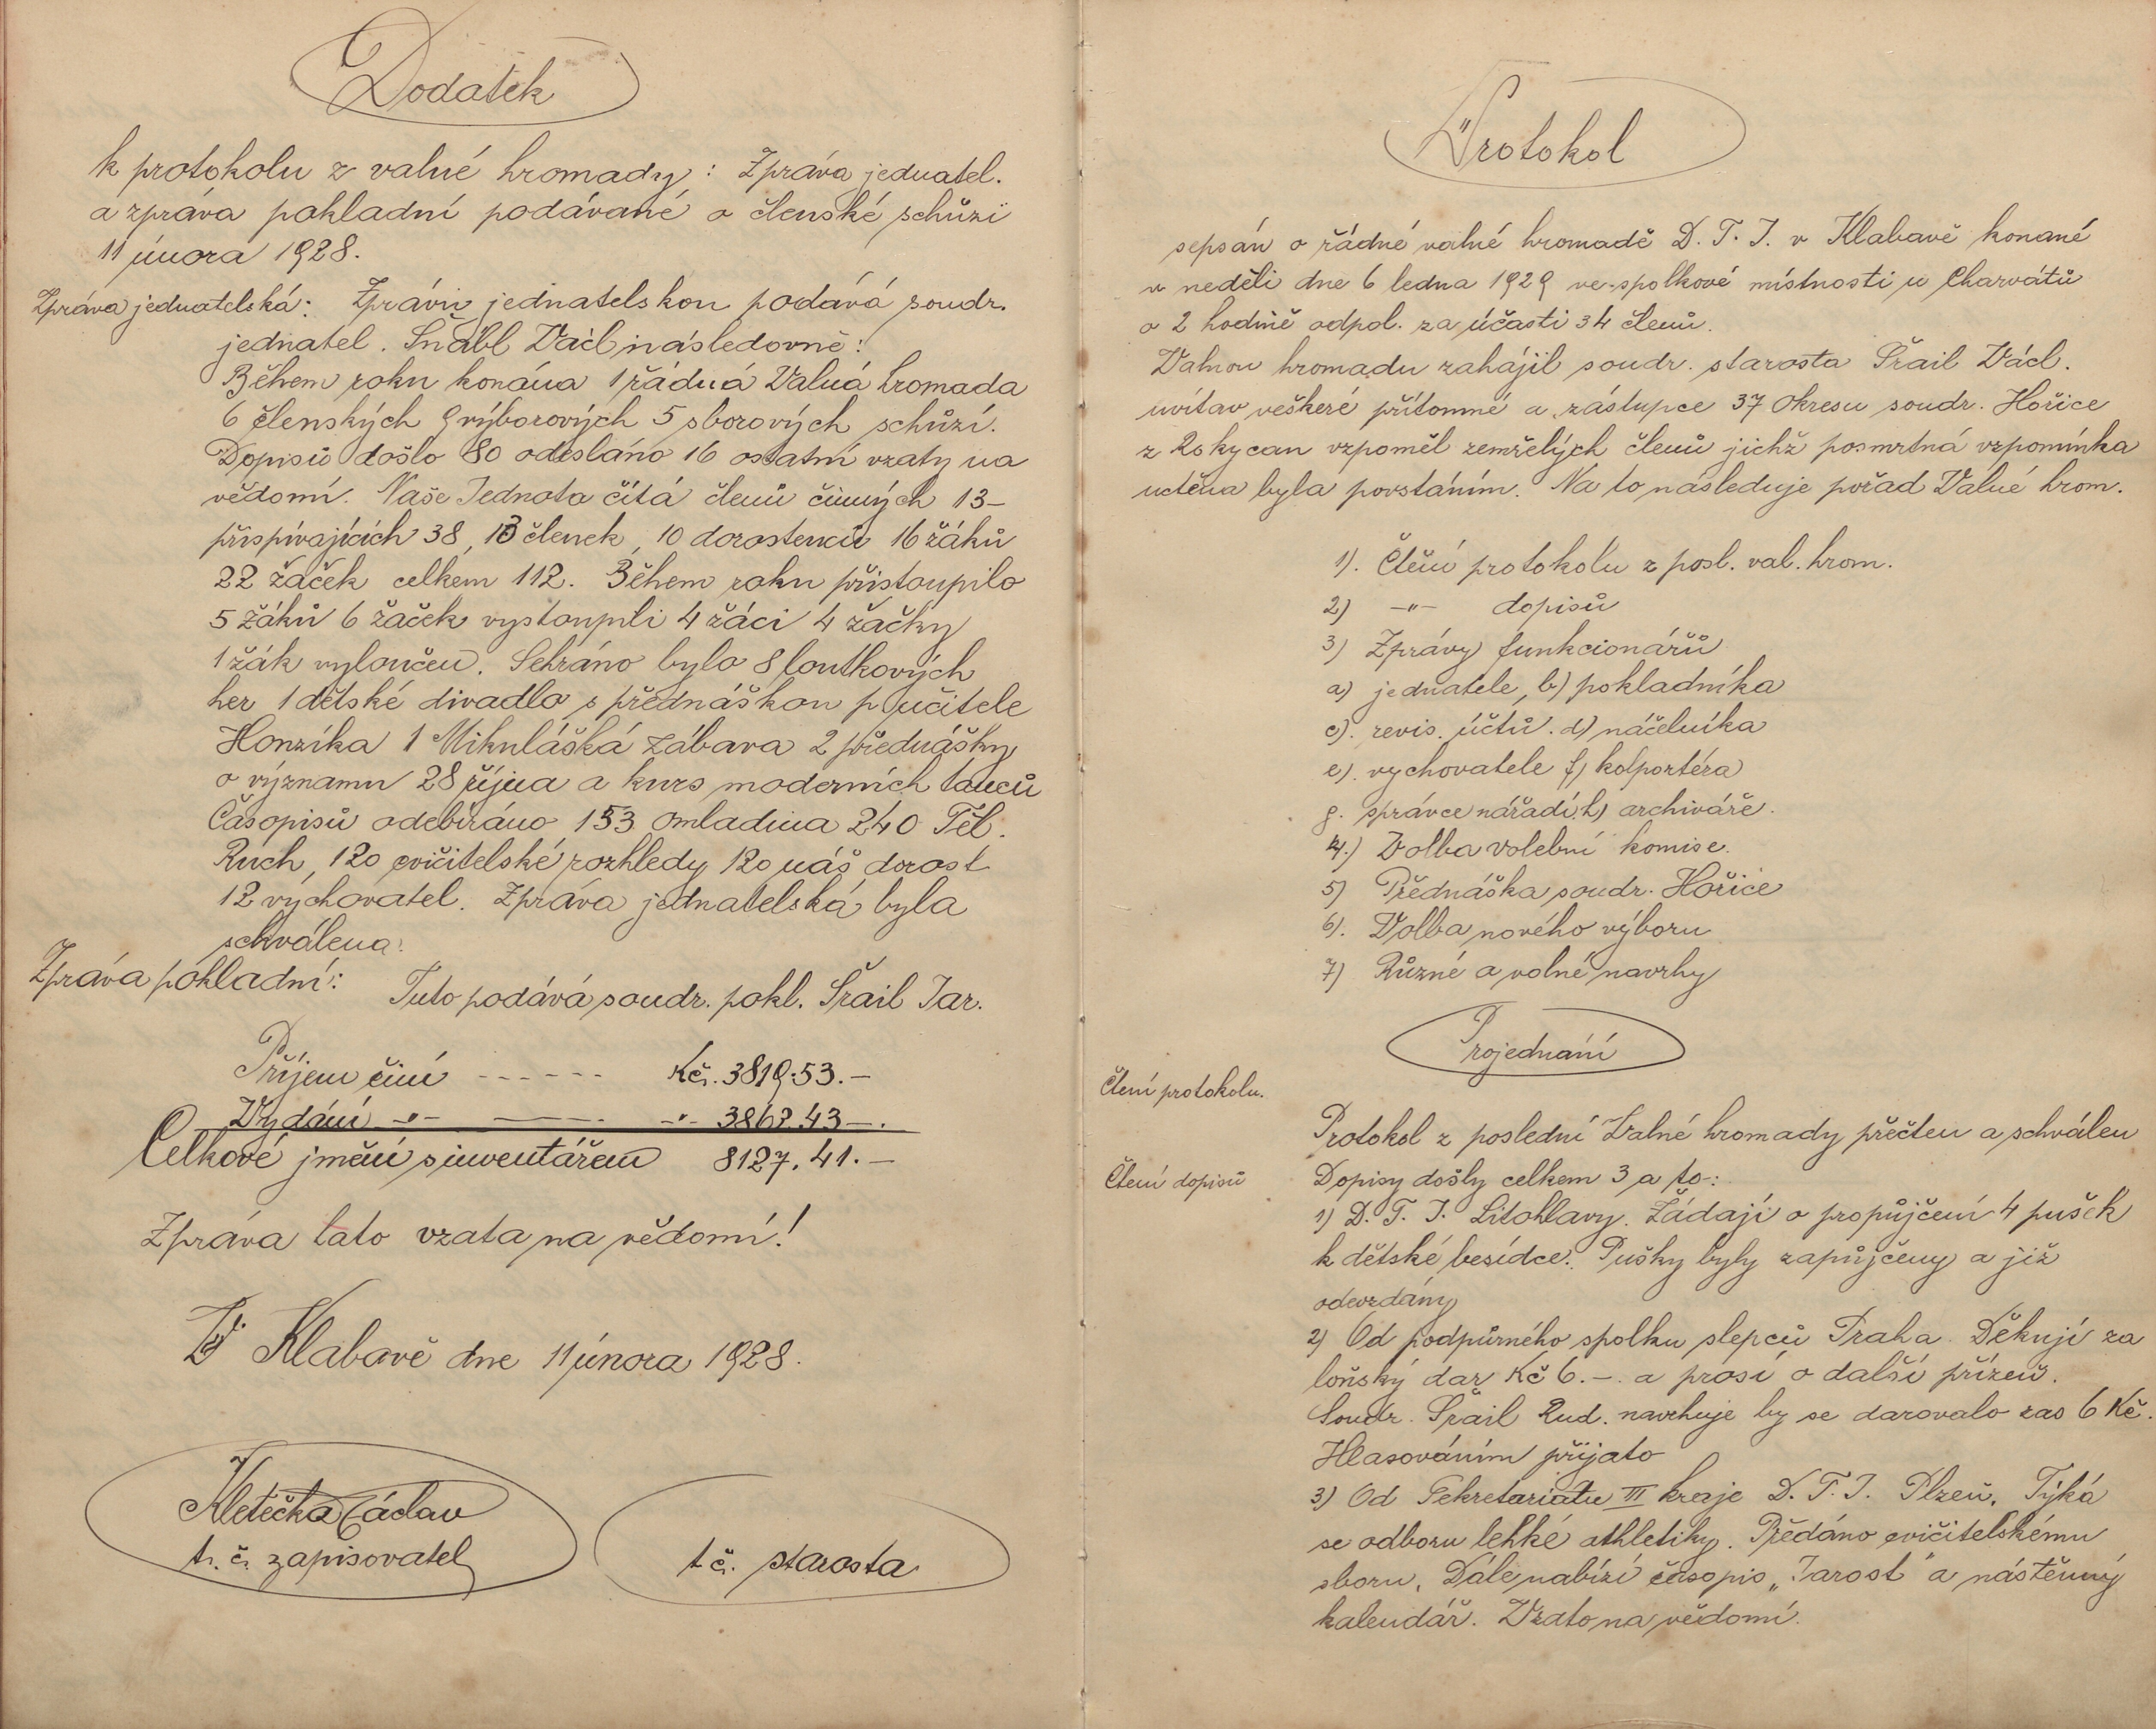 Dodatek
k protokolu z valné hromady: Zpráva jednatel.
a zpráva pokladní podávané o členské schůzi
11 února 1928.
Zpráva jednatelská: Zprávu jednatelskou podává soudr.
jednatel. Šnábl Václ následovně:
Během roku konána 1 řádná Valná hromada
6 členských 9 výborových 5 sborových schůzí.
Dopisů došlo 80 odesláno 16 ostatní vzaty na
vědomí. Naše Jednota čítá členů činných 13–
přispívajících 38, 13 členek, 10 dorostenců 16 žáků
22 žaček celkem 112. Během roku přistoupilo
5 žáků 6 žaček vystoupili 4 žáci 4 žačky
1 žák vyloučen. Sehráno bylo 8 loutkových
her 1 dětské divadlo s přednáškou p. učitele
Honzíka 1 Mikulášká zábava 2 přednášky
o významu 28 října a kurs moderních tanců
Časopisů odebíráno 153 Omladina 240 Těl.
Ruch, 120 cvičitelské rozhledy 120 náš dorost
12 vychovatel. Zpráva jednatelská byla
schválena.
Zpráva pokladní: Tuto podává soudr. pokl. Šrail Jar.
Příjem činí ------ Kč. 3819.53.–
Vydání –"– ——. –"– 3867.43–.
Celkové jmění s inventářem 8127.41.–
Zpráva tato vzata na vědomí!
V Klabavě dne 11 února 1928.
Kletečka Václav
t. č. zapisovatel
t č. starosta
Protokol
sepsán o řádné valné hromadě D. T. J. v Klabavě konané
v neděli dne 6 ledna 1929 ve spolkové místnosti u Charvátů
o 2 hodině odpol. za účasti 34 členů.
Valnou hromadu zahájil soudr. starosta Šrail Václ.
uvítav veškeré přítomné a zástupce 37 Okresu soudr. Hořice
z Rokycan vzpoměl zemřelých členů jichž posmrtná vzpomínka
uctěna byla povstáním. Na to následuje pořad Valné hrom.
1). Čtění protokolu z posl. val. hrom.
2) –"– dopisů
3) Zprávy funkcionářů
a) jednatele, b) pokladníka
c). revis. účtů. d) náčelníka
e). vychovatele f) kolportéra
g. správce nářadí, h) archiváře.
4.) Volba volební komise.
5) Přednáška soudr. Hořice
6). Volba nového výboru
7) Různé a volné navrhy
Projednání
Čtení protokolu.
Protokol z poslední Valné hromady přečten a schválen
Čtení dopisů Dopisy došly celkem 3 a to:
1) D. T. J. Litohlavy. Žádají o propůjčení 4 pušek
k dětské besídce. Pušky byly zapůjčeny a již
odevzdány
2) Od podpůrného spolku slepců Praha. Děkují za
loňský dar Kč 6.–. a prosí o další přízeň.
Soudr. Šrail Rud. navrhuje by se darovalo zas 6 Kč.
Hlasováním přijato
3) Od Sekretariatu III kraje D. T. J. Plzeň. Týká
se odboru lehké athletiky. Předáno cvičitelskému
sboru. Dále nabízí časopis „Jarost" a nástěnný
kalendář. Vzato na vědomí.